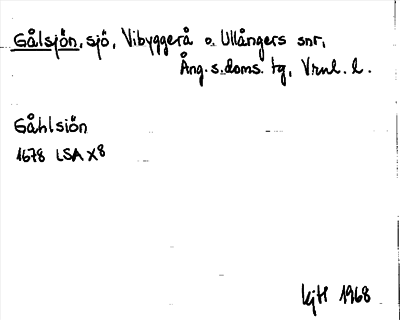 Gålsjön, sjö, Vibyggerå o. Ullångers snr,
Ång. s. doms. tg, Vrnl. l.
Gåhlsiön
1678 LSA X8
kjH 1968